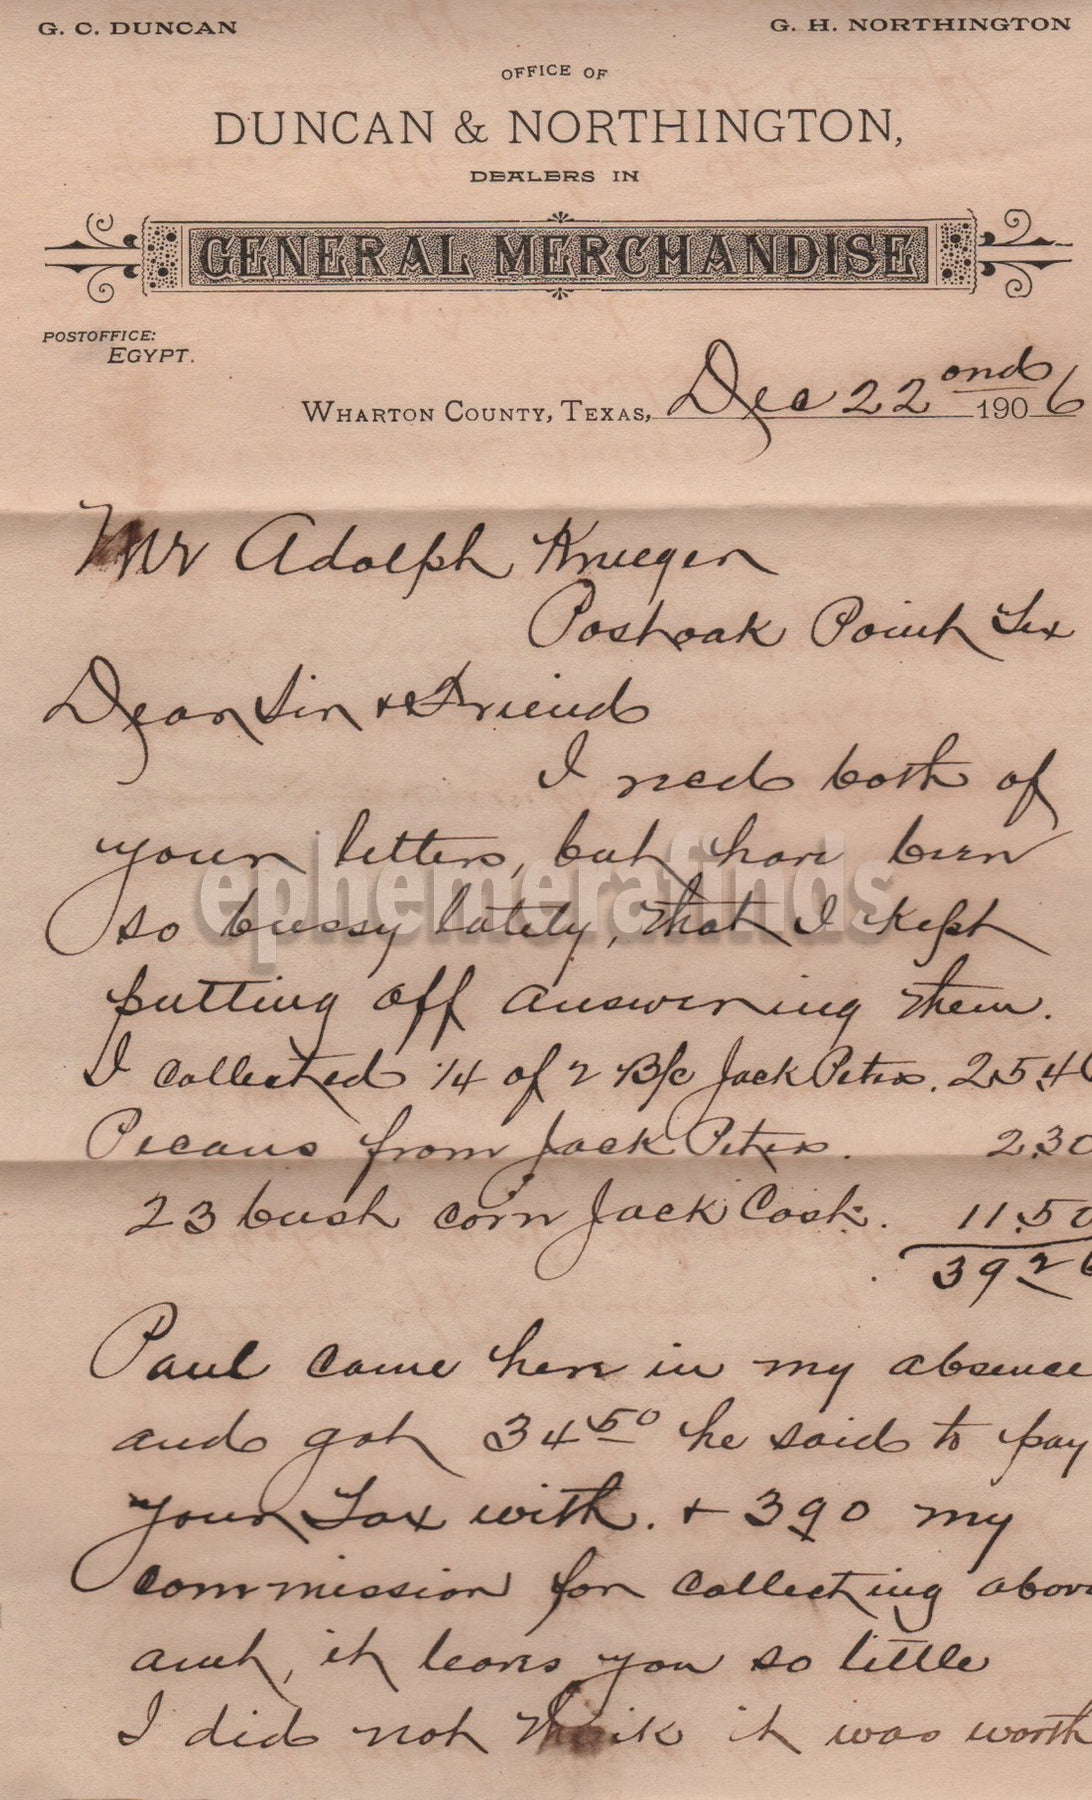 G. C. DUNCAN
G. H. NORTHINGTON
OFFICE OF
DUNCAN & NORTHINGTON,
DEALERS IN
GENERAL MERCHANDISE
POSTOFFICE:
EGYPT.
WHARTON COUNTY, TEXAS, Dec 22ond 1906
Mr Adolph Krueger
Postoak Point Tex
Dear Sir & Friend
I recd both of
your letters, but have been
so bussy lately, that I kept
putting off answering them.
I collected 1/4 of 2 B/c Jack Peters. 25.46
Pecans from Jack Peters. 2.30
23 bush corn Jack Cost. 11.50
39.26
Paul came here in my absence
and got 34 50 he said to pay
your Tax with. + 390 my
commission for collecting above
amt, it leaves you so little
I did not think it was worth
ephemerafinds